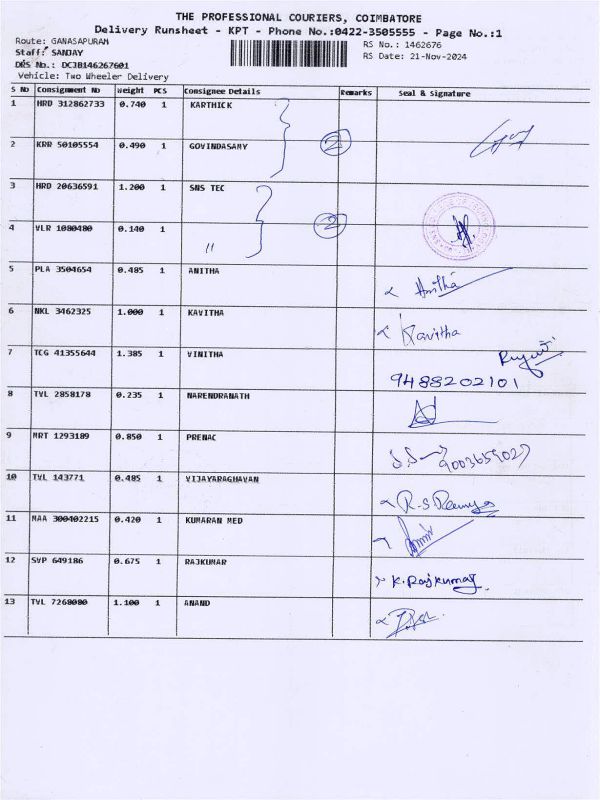 THE PROFESSIONAL COURIERS, COIMBATORE
Delivery Runsheet - KPT - Phone No.:0422-3505555 - Page No.:1
Route: GANASAPURAM
RS No.: 1462676
Staff: SANJAY
RS Date: 21-Nov-2024
DRS No.: DCJB146267601
Vehicle: Two Wheeler Delivery
S No Consignment No Weight PCS Consignee Details Remarks Seal & signature
1 HRD 312862733 0.740 1 KARTHICK
2 KRR 50105554 0.490 1 GOVINDASAMY 2
3 HRD 20636591 1.200 1 SNS TEC
4 VLR 1080480 0.140 1 " 2
5 PLA 3504654 0.485 1 ANITHA Anitha
6 NKL 3462325 1.000 1 KAVITHA Kavitha
7 TCG 41355644 1.385 1 VINITHA
9488202101
8 TVL 2858178 0.235 1 NARENDRANATH
9 MRT 1293189 0.850 1 PRENAC
9003659027
10 TVL 143771 0.485 1 VIJAYARAGHAVAN R.S Ramya
11 MAA 300402215 0.420 1 KUMARAN MED
12 SVP 649186 0.675 1 RAJKUMAR K.Rajkumar
13 TVL 7268080 1.100 1 ANAND